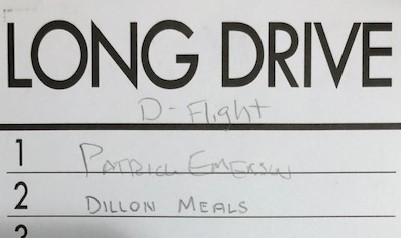 LONG DRIVE
D-Flight
1 PATRICK EMERSON
2 DILLON MEALS
3